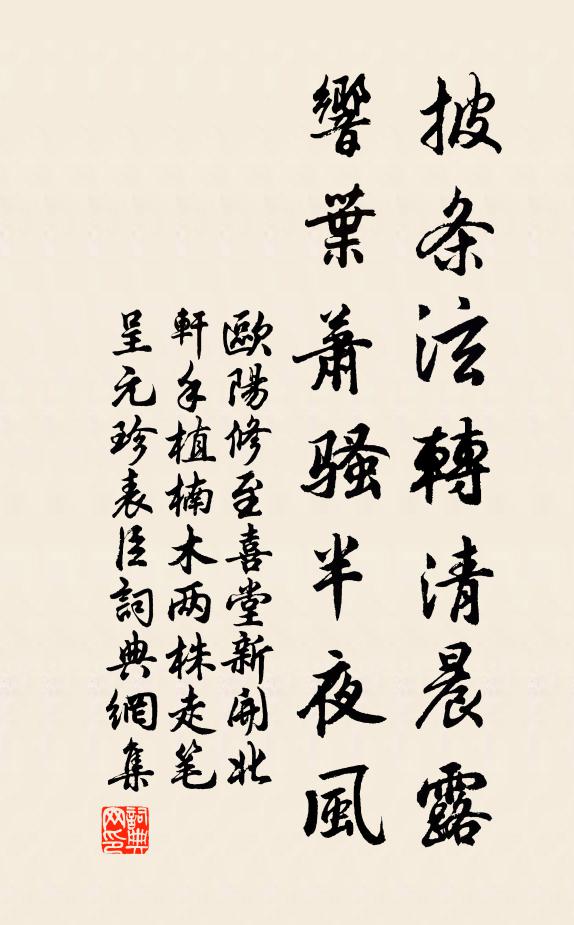 披条泫轉清晨露
響葉蕭騷半夜風
歐陽修至喜堂新開北
軒手植楠木两株走笔
呈元珍表臣詞典網集
詞典
网印